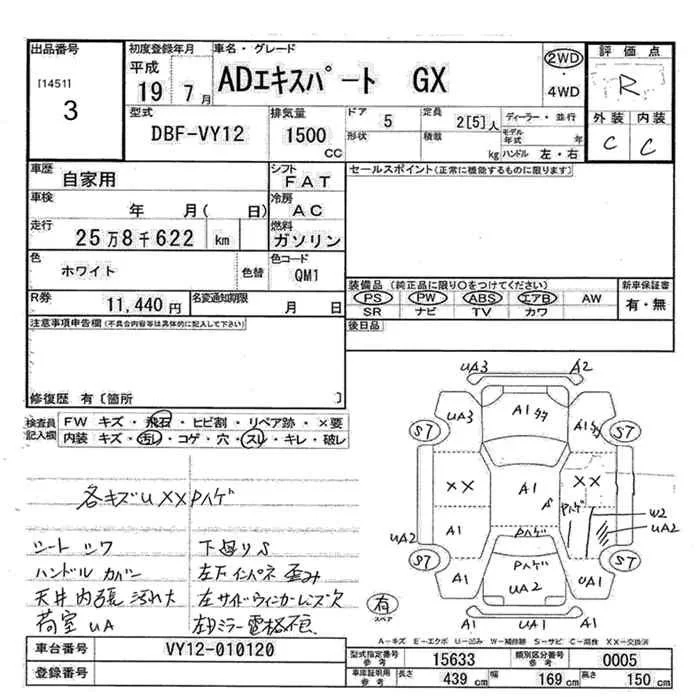 出品番号
[1451]
3
初度登録年月
平成
19 7月
車名・グレード
ADエキスパート GX
2WD
・
4WD
評価点
R
外装 内装
C C
型式
DBF-VY12
排気量
1500
CC
ドア
5
定員
2[5]人
形状
積載
kg
ディーラー・並行
モデル年式 年
ハンドル 左・右
車歴
自家用
シフト
FAT
車検
年 月( 日)
冷房
AC
走行
25万8千622 km
燃料
ガソリン
色
ホワイト
色替
色コード
QM1
R券
11,440円
名変通知期限
月 日
セールスポイント(正常に機能するものに限ります)
装備品(純正品に限り○をつけてください)
PS PW ABS エアB AW
SR ナビ TV カワ
新車保証書
有・無
後日品
注意事項申告欄(不具合内容等は具体的に記入して下さい)
修復歴 有〔箇所 〕
検査員記入欄
FW キズ・飛石・ヒビ割・リペア跡・×要
内装 キズ・汚レ・コゲ・穴・スレ・キレ・破レ
各キズU XX Pハゲ
シート シワ
ハンドル カバー
天井内張汚れ大
荷室 UA
下廻りS
左下インパネ歪み
左サイドウィンカーレンズ欠
左ドミラー電格不良
UA3 A2
UA3 A1 タタ A1タタ
ST ST
XX A1 XX
S Pハゲ
W2
UA2
A1 Pハゲ
UA2
ST Pハゲ ST
A1 UA2 UA1
A1 UA1 A1
有
スペア
A－キズ E－エクボ U－凹み W－補修跡 S－サビ C－腐食 XX－交換済
車台番号
VY12-010120
登録番号
型式指定番号
参考
15633
類別区分番号
参考
0005
車庫証明用
参考
長さ
439 cm
幅
169 cm
高さ
150 cm